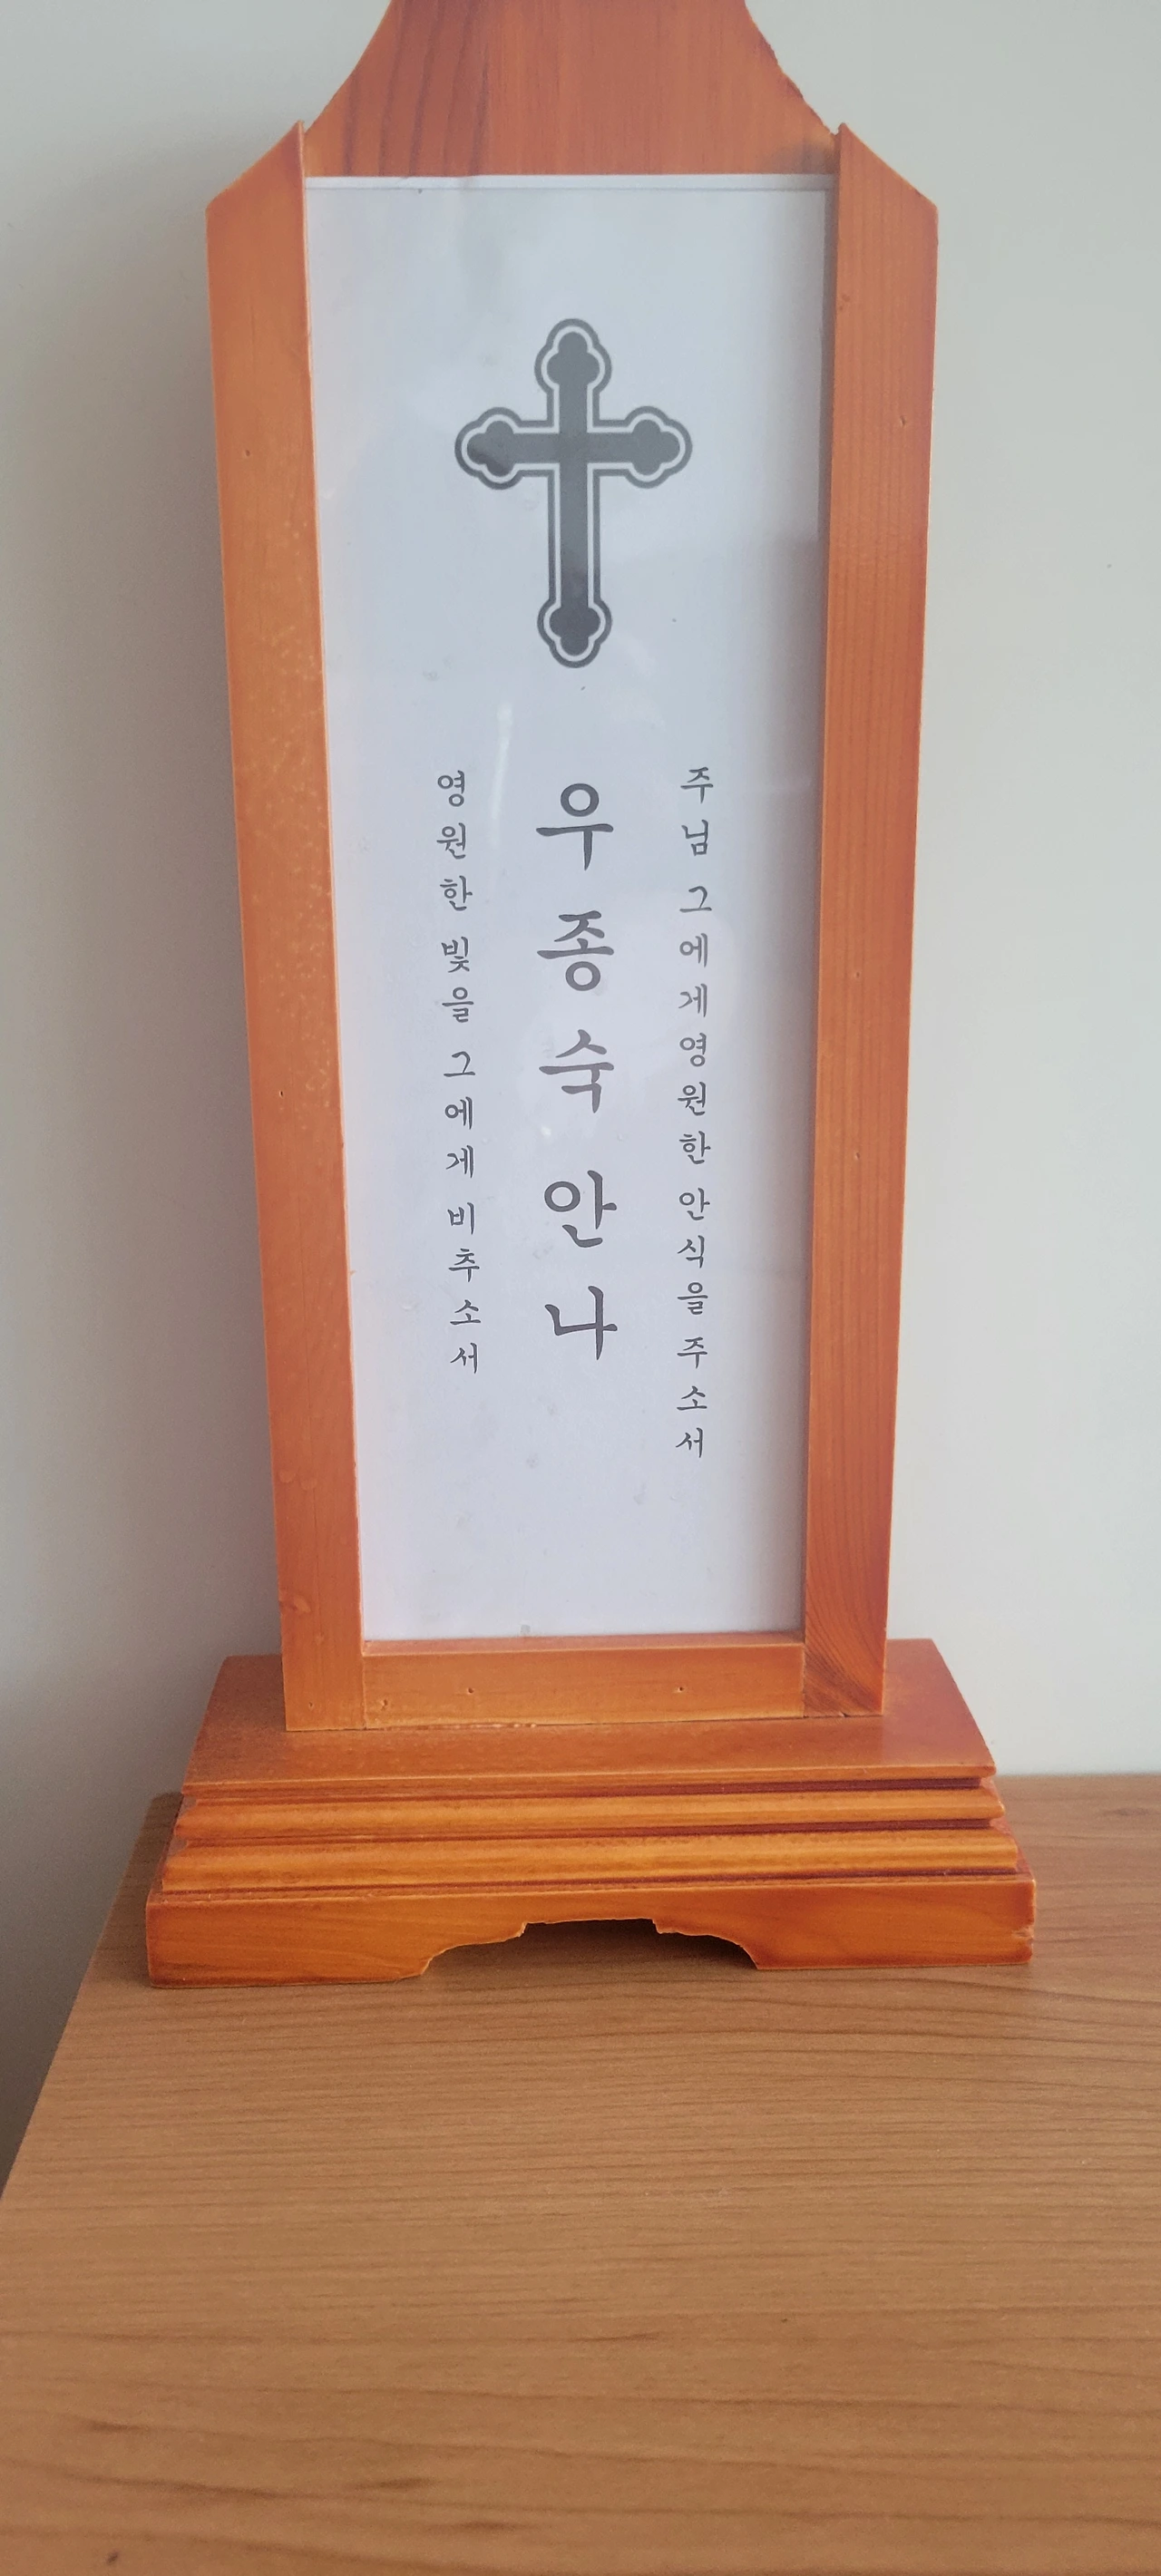 주님 그에게영원한 안식을 주소서
우종숙 안나
영원한 빛을 그에게 비추소서